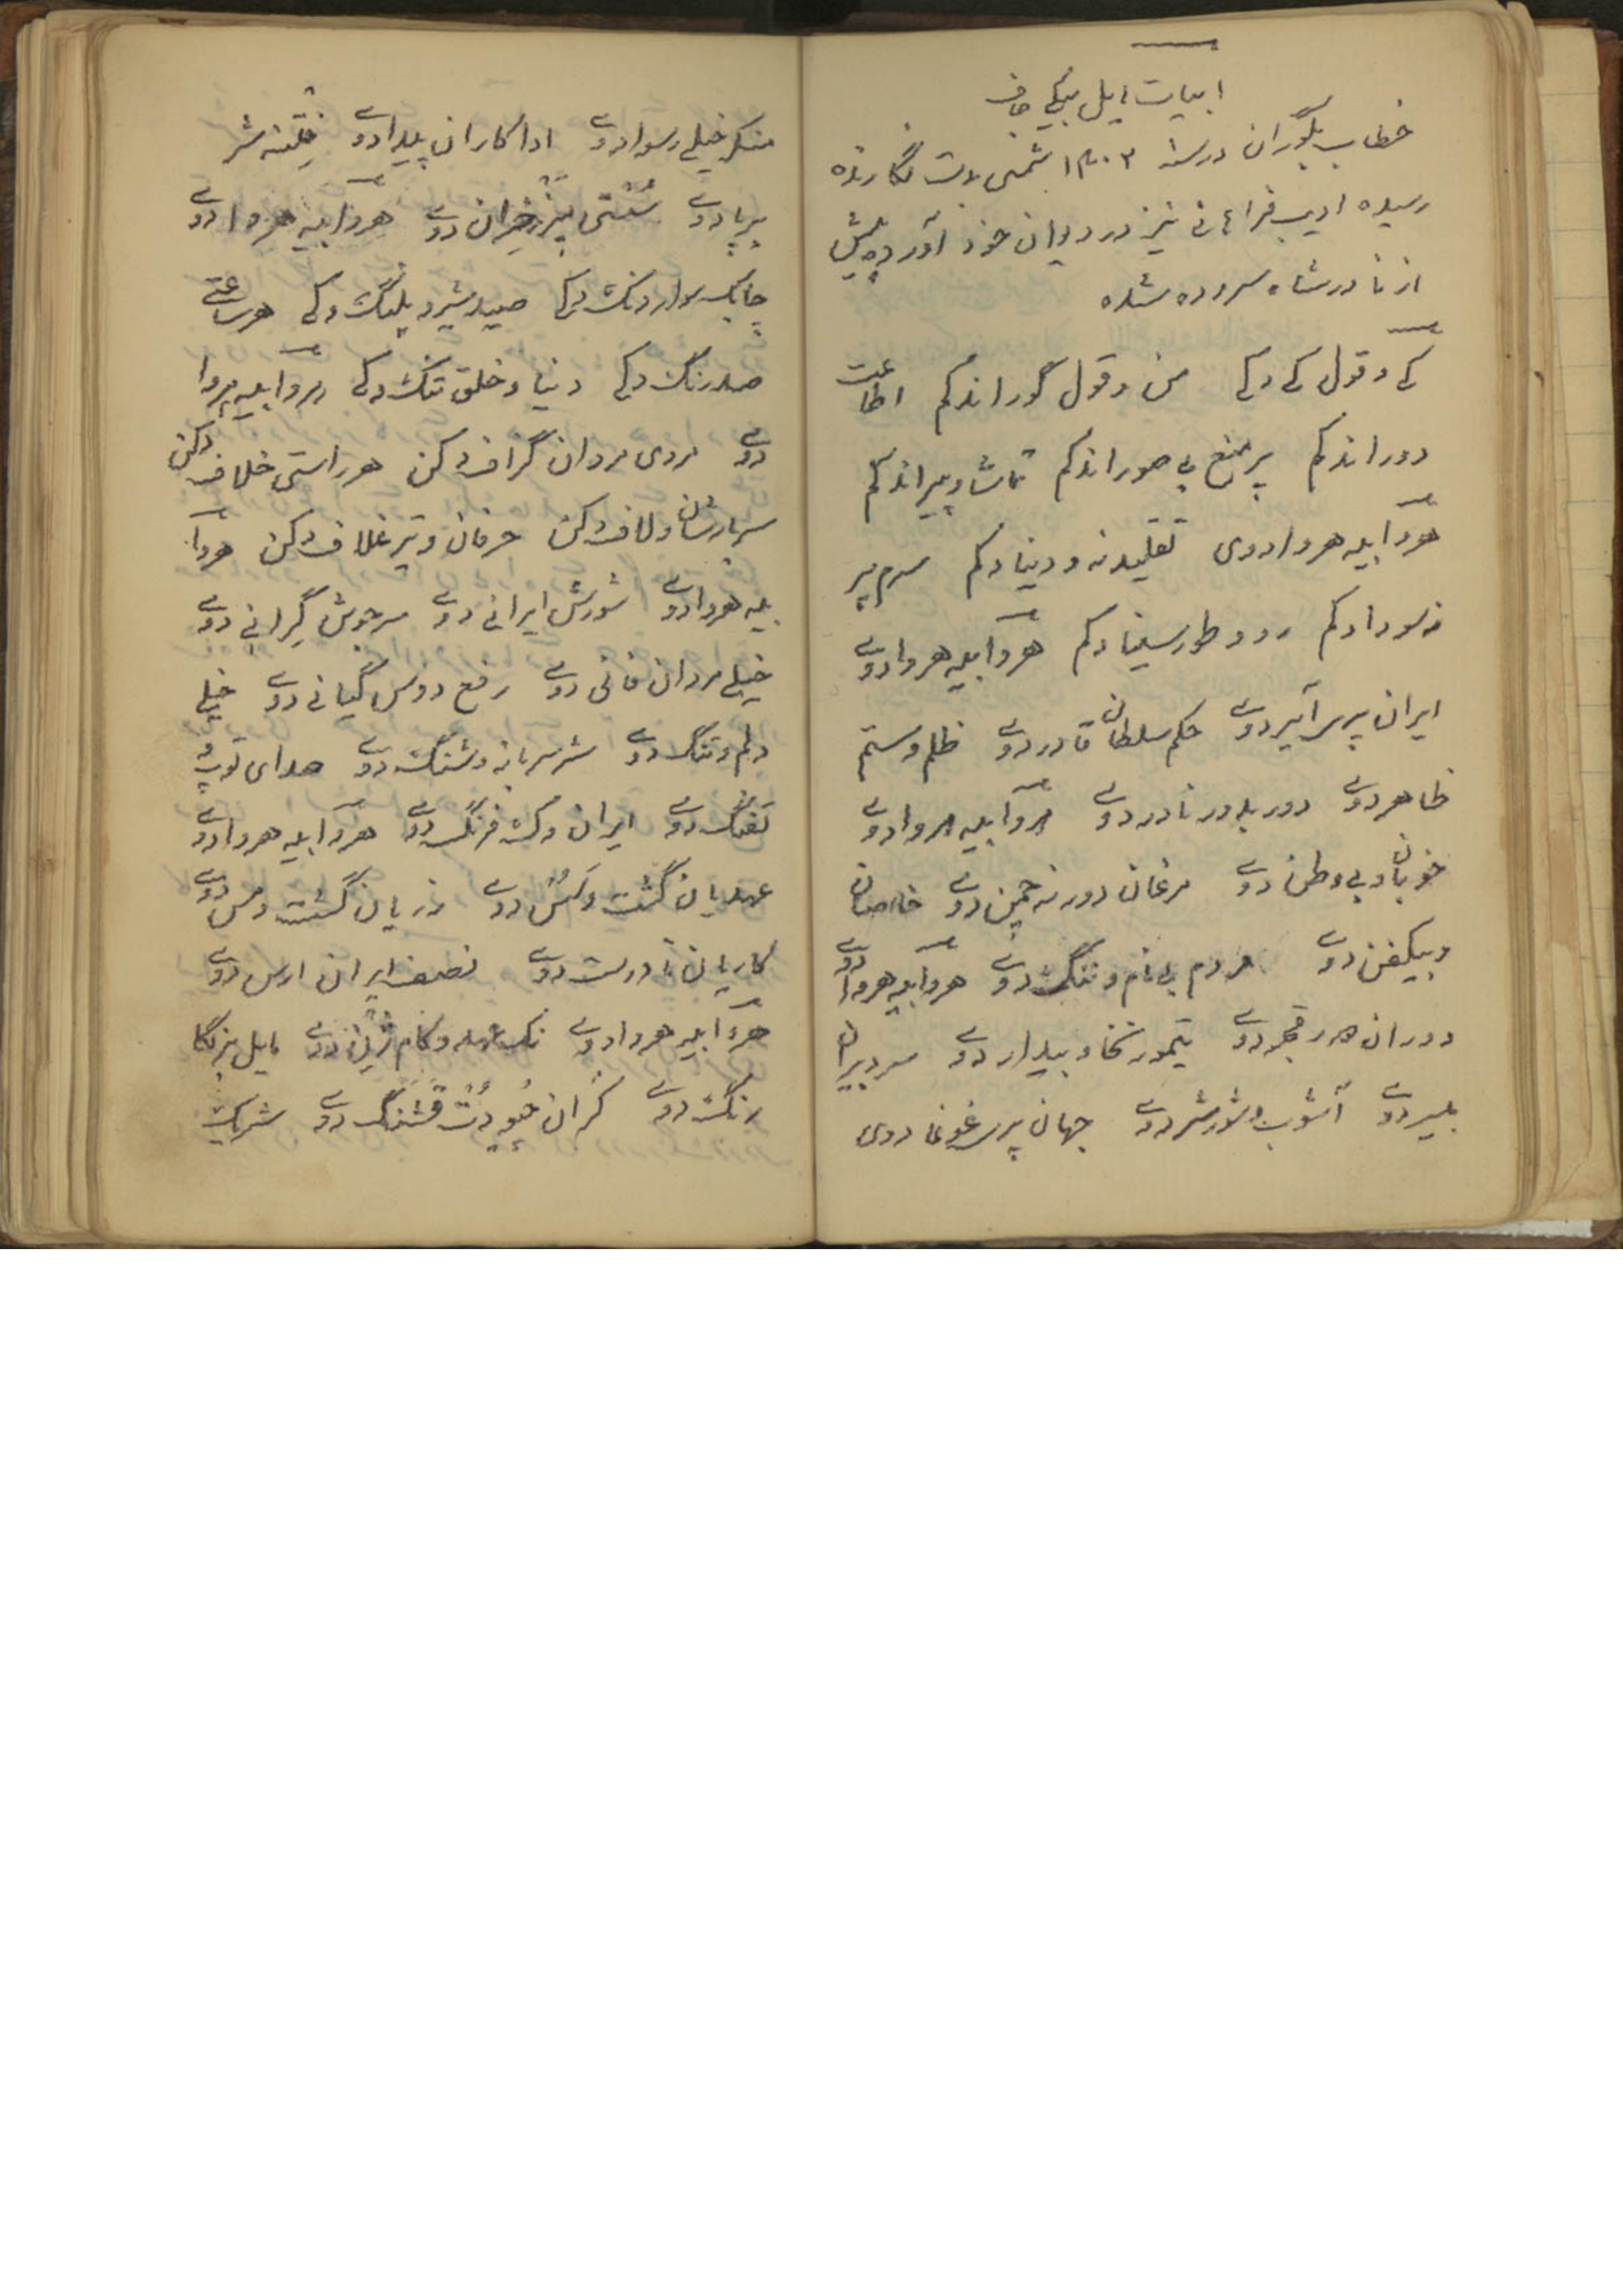 ابیات ایل بیگی جاف
خطاب بگوران در سنه ۱۳۰۳ شمسی بدست نگارنده
رسیده ادیب فراهانی نیز در دیوان خود آورده پیش
از نادرشاه سروده شده
کی و قول کی دکی من و قول گوراندکم اطاعت
دوراندکم پر صنع بی صوراندکم تماشا و پیراندکم
هروا بیه هروادوی تقلید نه و دینادکم سرم پر
نه سودادکم رو و طور سینادکم هروا بیه هروادوی
ایران پر سرآیردوی حکم سلطان قادر دوی ظلم و ستم
ظاهر دوی دور بدور نادر دوی هروا بیه هروادوی
خوبان و بی وطن دوی مرغان دور نه چمن دوی خاصان
و بیکفن دوی مردم بی نام و ننگ دوی هروا بیه هروا دوی
دوران هر قجر دوی تیمور نخا و بیدار دوی سردیران
بلیر دوی آشوب و شورشر دوی جهان پر غوغا دوی
منکر خیلی رسوا دوی اداکاران پیدا دوی فتنه شر
برپا دوی سنتی دوی هروا بیه هروا دوی
چابک سوار دنگ دکی صید شیر و پلنگ دکی هر ساعتی
صد رنگ دکی دنیا و خلق تنگ دکی هروا بیه هروا
دوی مردی مردان گزاف دکن هر راستی خلاف دکن
سربازشان ولاف دکن حرفان و تیر غلاف دکن هروا
بیه هروا دوی شورش ایرانی دوی سرجوش گرانی دوی
خیلی مردان فانی دوی رفع دوس گیانی دوی خیلی
دلم و تنگ دوی شر سربانه و شنگ دوی صدای توپ
تفنگ دوی ایران و ک فرنگ دوی هروا بیه هروا دوی
عهدیان گشت و کس دوی زریان گشت و مس دوی
کاریان نادرست دوی نصف ایران ارس دوی
هروا بیه هروادوی نک عهد و کام ژنین دوی مایل بزنگا
رنگ دوی کران قشنگ دوی شریک